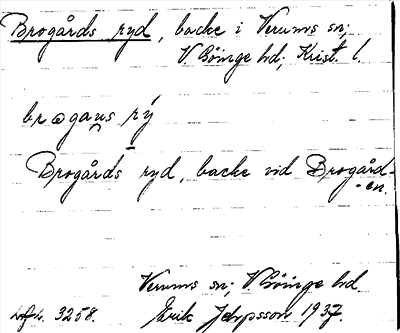 Brogårds ryd, backe i Verums sn;
V. Göinge hd; Krist. l.
brogans rý
Brogårds ryd, backe vid Brogård-
-en.
Verums sn; V. Göinge hd
3258. Erik Jeppsson 1937.